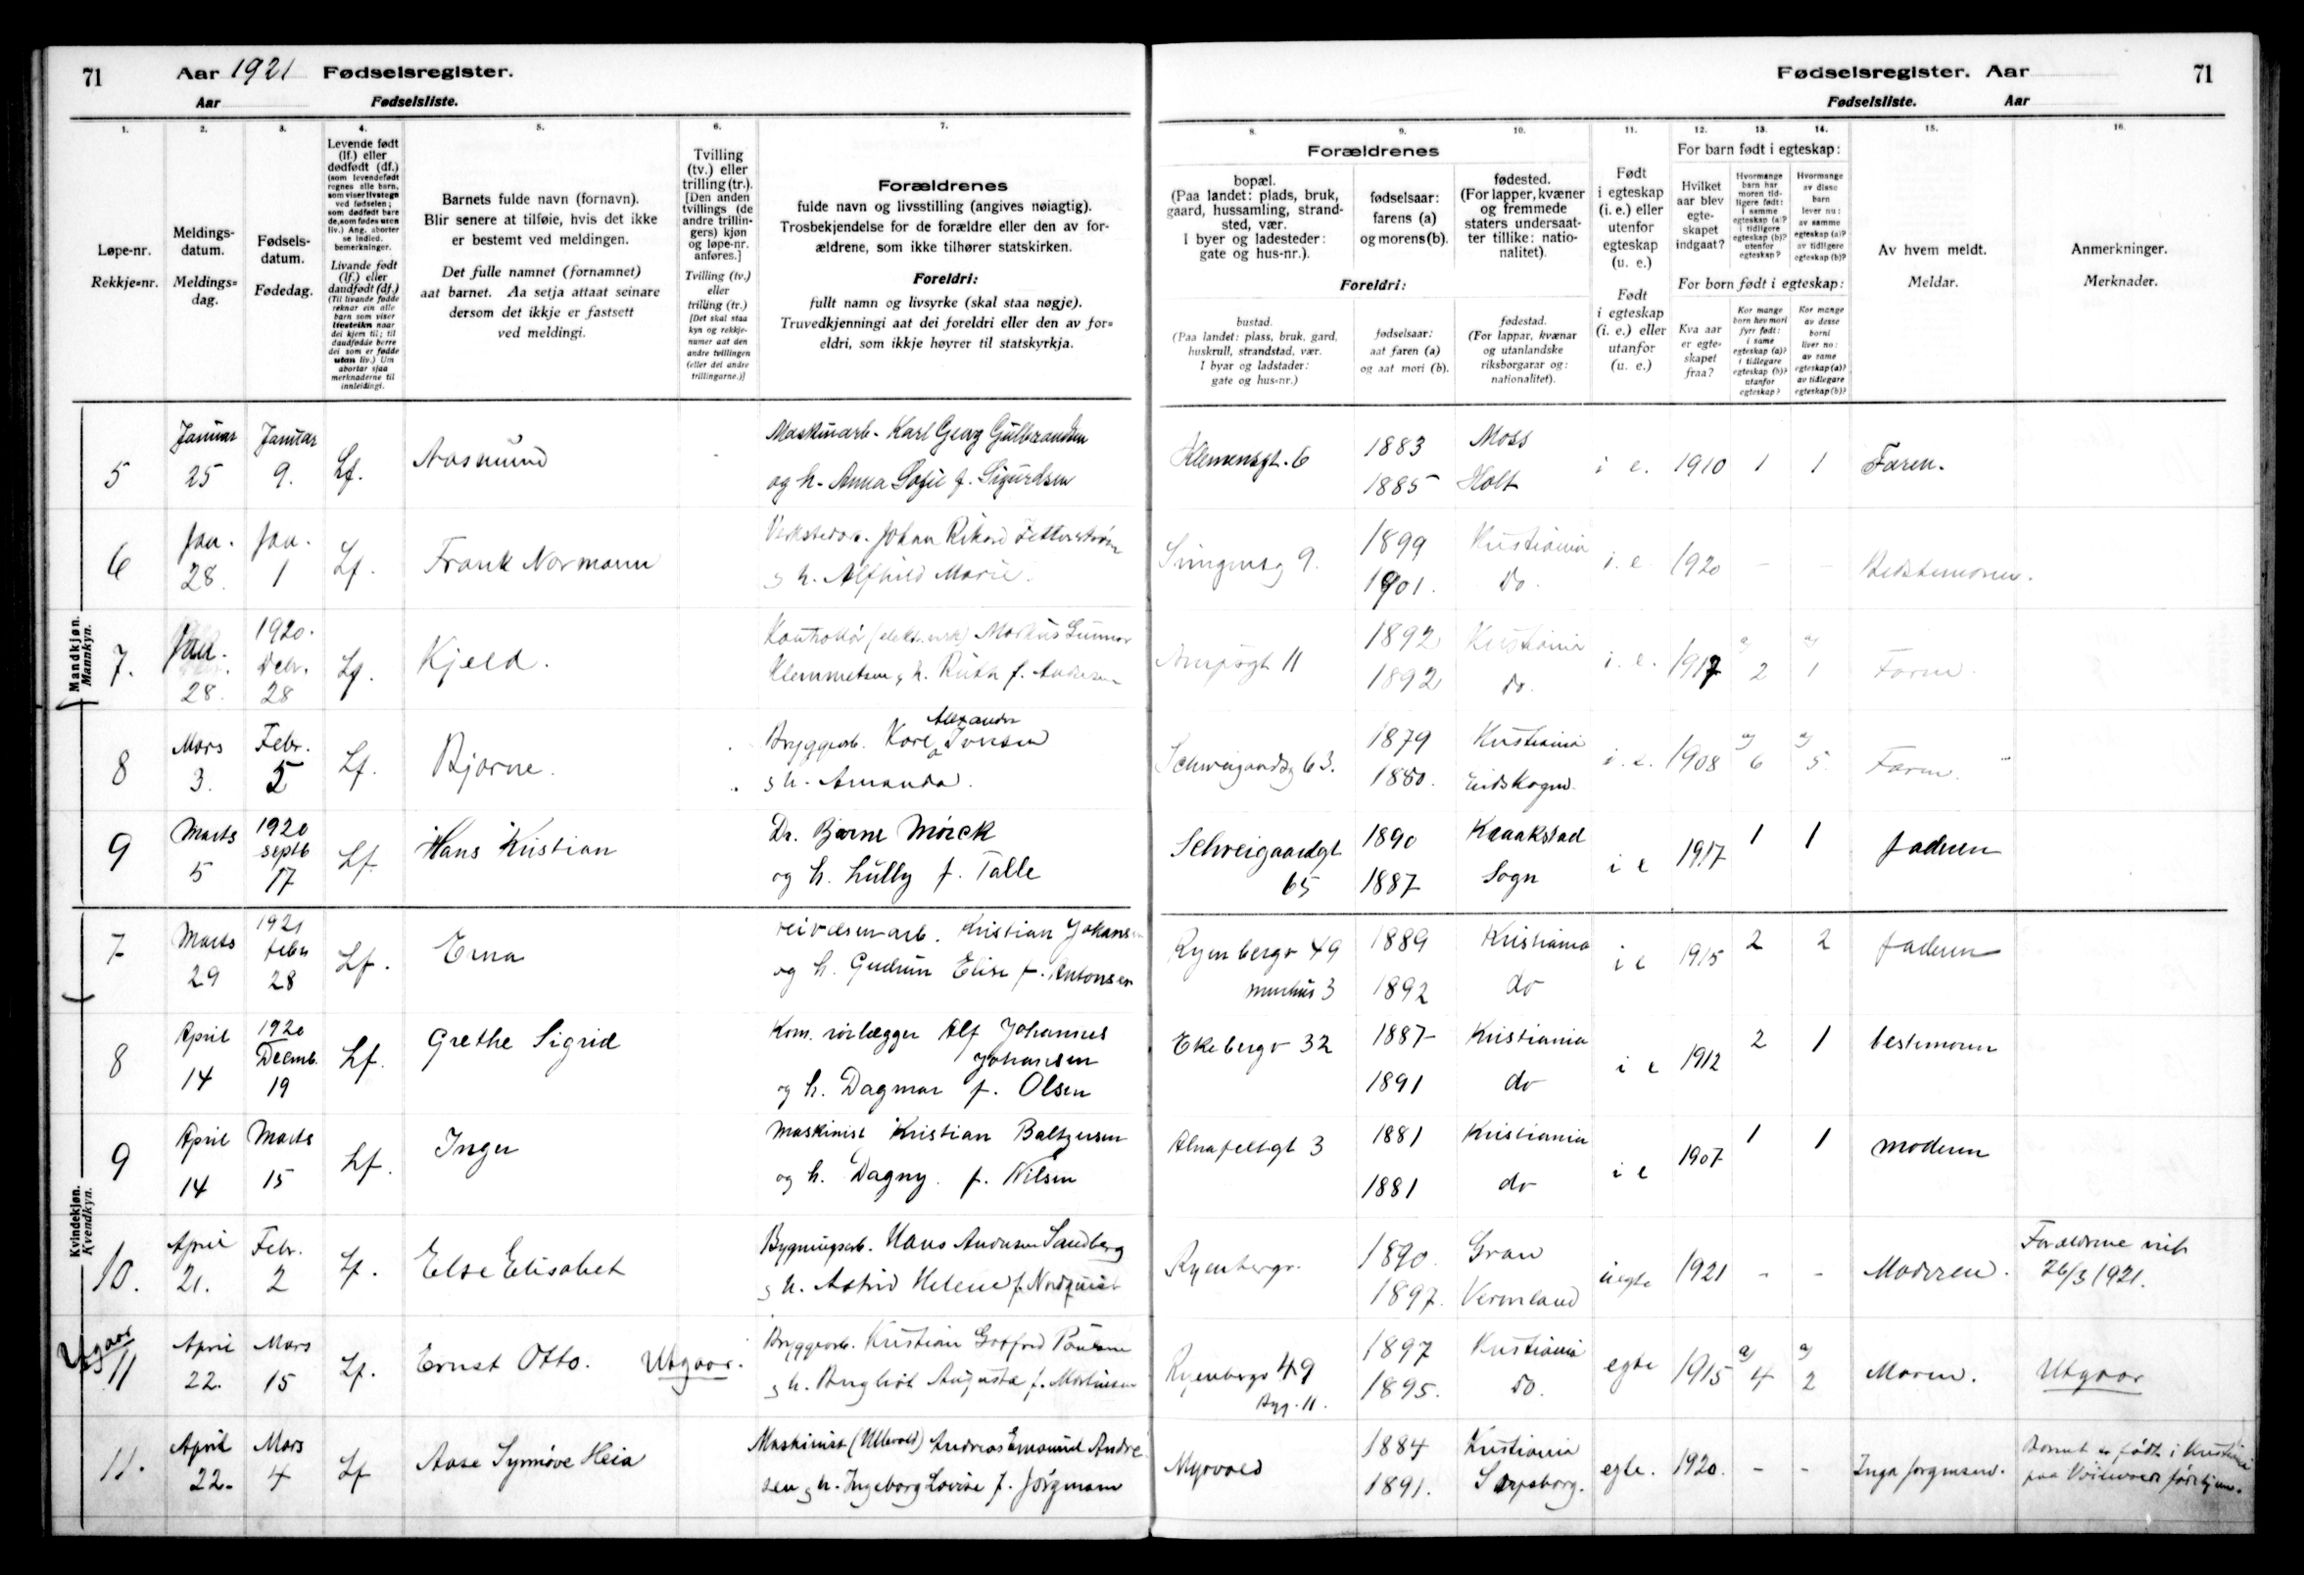 71
Aar 1921 Fødselsregister.
Aar
Fødselsliste.
1.
Løpe-nr.
Rekkje=nr.
2.
Meldings-
datum.
Meldings=
dag.
3.
Fødsels-
datum.
Fødedag.
4.
Levende født
(lf.) eller
dødfødt (df.)
(som levendefødt
regnes alle barn,
som viser livstegn
ved fødselen;
som dødfødt bare
de, som fødes uten
liv.) Ang. aborter
se indled.
bemerkninger.
Livande født
(lf.) eller
daudfødt (df.)
(Til livande fødde
reknar ein alle
barn som viser
livsteikn naar
dei kjem til; til
daudfødde berre
dei som er fødde
utan liv.) Um
abortar sjaa
merknaderne til
innleidingi.
5.
Barnets fulde navn (fornavn).
Blir senere at tilføie, hvis det ikke
er bestemt ved meldingen.
Det fulle namnet (fornamnet)
aat barnet. Aa setja attaat seinare
dersom det ikkje er fastsett
ved meldingi.
6.
Tvilling
(tv.) eller
trilling (tr.).
[Den anden
tvillings (de
andre trillin-
gers) kjøn
og løpe-nr.
anføres.]
Tvilling (tv.)
eller
trilling (tr.)
[Det skal staa
kyn og rekkje-
numer aat den
andre tvillingen
(eller dei andre
trillingarne.)]
7.
Forældrenes
fulde navn og livsstilling (angives nøiagtig).
Trosbekjendelse for de forældre eller den av for-
ældrene, som ikke tilhører statskirken.
Foreldri:
fullt namn og livsyrke (skal staa nøgje).
Truvedkjenningi aat dei foreldri eller den av for=
eldri, som ikkje høyrer til statskyrkja.
Fødselsregister. Aar
71
Fødselsliste. Aar
8.
9.
10.
Forældrenes
bopæl.
(Paa landet: plads, bruk,
gaard, hussamling, strand-
sted, vær.
I byer og ladesteder:
gate og hus-nr.).
fødselsaar:
farens (a)
og morens (b).
fødested.
(For lapper, kvæner
og fremmede
staters undersaat-
ter tillike: natio-
nalitet).
Foreldri:
bustad.
(Paa landet: plass, bruk, gard,
huskrull, strandstad, vær.
I byar og ladstader:
gate og hus-nr.)
fødselsaar:
aat faren (a)
og aat mori (b).
fødestad.
(For lappar, kvænar
og utanlandske
riksborgarar og:
nationalitet).
11.
Født
i egteskap
(i. e.) eller
utenfor
egteskap
(u. e.)
Født
i egteskap
(i. e.) eller
utanfor
(u. e.)
12.
13.
14.
For barn født i egteskap:
Hvilket
aar blev
egte-
skapet
indgaat?
Hvormange
barn har
moren tid-
ligere født:
i samme
egteskap (a)?
i tidligere
egteskap (b)?
utenfor
egteskap?
Hvormange
av disse
barn
lever nu:
av samme
egteskap (a)?
av tidligere
egteskap (b)?
For born født i egteskap:
Kva aar
er egte-
skapet
fraa?
Kor mange
born hev mori
fyrr født:
i same
egteskap (a)?
i tidlegare
egteskap (b)?
utanfor
egteskap?
Kor mange
av desse
borni
liver no:
av same
egteskap (a)?
av tidlegare
egteskap (b)?
15.
Av hvem meldt.
Meldar.
16.
Anmerkninger.
Merknader.
Mandkjøn.
Mannkyn.
5 Januar 25 Januar 9. Lf. Aasmund Maskinarb. Karl Georg Gulbrandsen
og h. Anna Sofie f. Sigurdsen
Klemensgt. 6 1883 Moss i e. 1910 1 1 Faren.
1885 Holt
6 Jan. 28. Jan. 1 Lf. Frank Normann Johan Rikard Zetterstrøm
og h. Alfhild Marie.
9. 1899 Kristiania i. e. 1920 - - Bedstemoren.
1901. Do.
7. Jan. 28. 1920. Debr. 28 Lf. Kjeld. Kontrollør (elekt. verk) Markus Gunnar
Klemmetsen og h. Ruth f. Andersen
11 1892 Kristiania i. e. 1917 a) 2 a) 1 Faren.
1892 do.
8 Mars 3. Febr. 5 Lf. Bjarne. Bryggearb. Karl Alexander Iversen
og h. Amanda.
Schweigaardsg 63. 1879 Kristiania i. e. 1908 a) 6 a) 5. Faren.
1880. Eidskogen.
9 Marts 5 1920 septb 17 Lf. Hans Kristian Dr. Bjarne Mørck
og h. Lully f. Talle
Schweigaardgt 65 1890 Kraakstad i e 1917 1 1 faderen
1887 Sogn
Kvindekjøn.
Kvendkyn.
7 Marts 29 1921 febr 28 Lf. Erna Kristian Johansen
og h. Gudrun Elise f. Antonsen
Ryenbergv 49 murhus 3 1889 Kristiania i e 1915 2 2 faderen
1892 do
8 April 14 1920 Decmb. 19 Lf. Grethe Sigrid Kom. rørlægger Alf Johannes
Johansen
og h. Dagmar f. Olsen
Ekebergv 32 1887 Kristiania i e 1912 2 1 bestemoren
1891 do
9 April 14 Marts 15 Lf. Inger Maskinist Kristian Baltzersen
og h. Dagny. f. Nilsen
Alnafeltgt 3 1881 Kristiania i e 1907 1 1 moderen
1881 do
10. April 21. Febr. 2 Lf. Else Elisabet Bygningsarb. Hans Andersen Sandberg
og h. Astrid Helene f. Nordquist
Ryenbergv. 1890. Gran uegte 1921 - - Moderen. Forældrene viet
1897. Vermland 26/3 1921.
Utgaar
11 April 22. Mars 15 Lf. Ernst Otto. Utgaar. Bryggearb. Kristian Gotfred Paulsen
og h. Borghild Augusta f. Martinsen
Ryenbergv 49 Byg. 11. 1897 Kristiania egte 1915 a) 4 a) 2 Moren. Utgaar
1895. Do.
11. April 22. Mars 4 Lf Aase Synnøve Heia Maskinist (Ullevold) Andreas Emanuel Andre
sen og h. Ingeborg Lovise f. Jørgensen
Myrvold 1884 Kristiania egte. 1920. - - Inga Jørgensen. Barnet er født i Kristiania
1891. Sarpsborg. paa